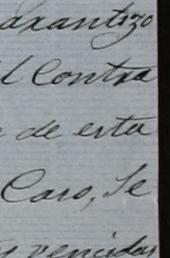 arantizo
l Contra
de esta
Caso, Se
y vencidas